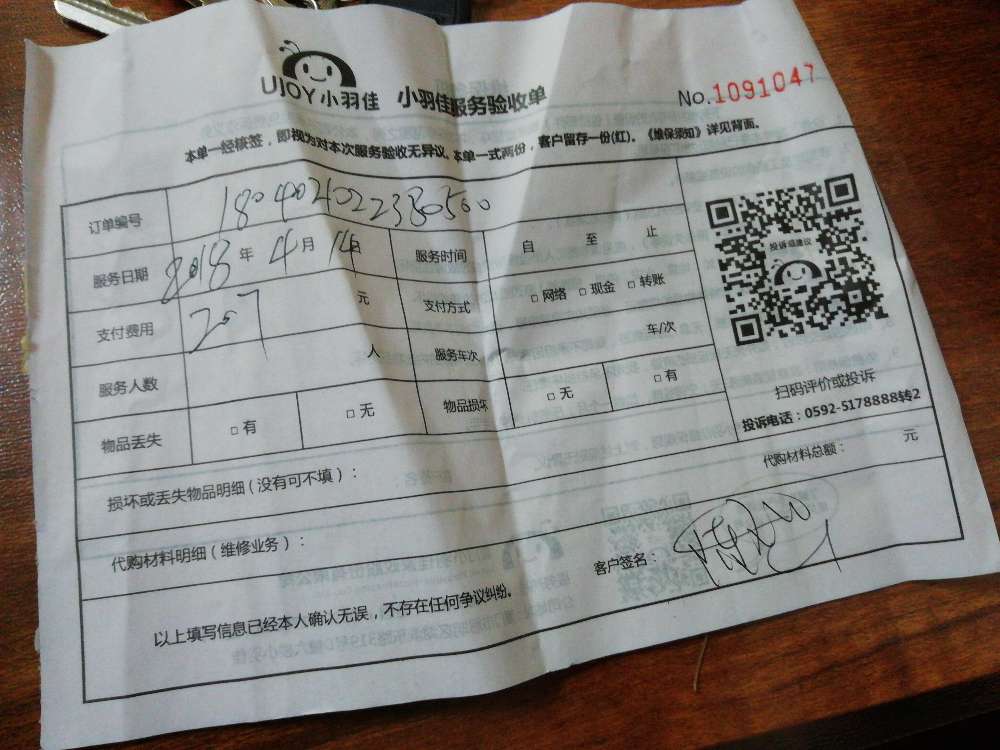 UJOY小羽佳 小羽佳服务验收单 No.1091047
本单一经核签，即视为对本次服务验收无异议。本单一式两份，客户留存一份(红)。《维保须知》详见背面。
订单编号
服务日期 2018年4月14日 服务时间 自 至 止
支付费用 207 元 支付方式 □网络 □现金 □转账
服务人数 人 服务车次 车/次
物品丢失 □有 □无 物品损坏 □无 □有
投诉或建议
扫码评价或投诉
投诉电话：0592-5178888转2
损坏或丢失物品明细（没有可不填）：
代购材料明细（维修业务）： 代购材料总额： 元
以上填写信息已经本人确认无误，不存在任何争议纠纷。 客户签名：